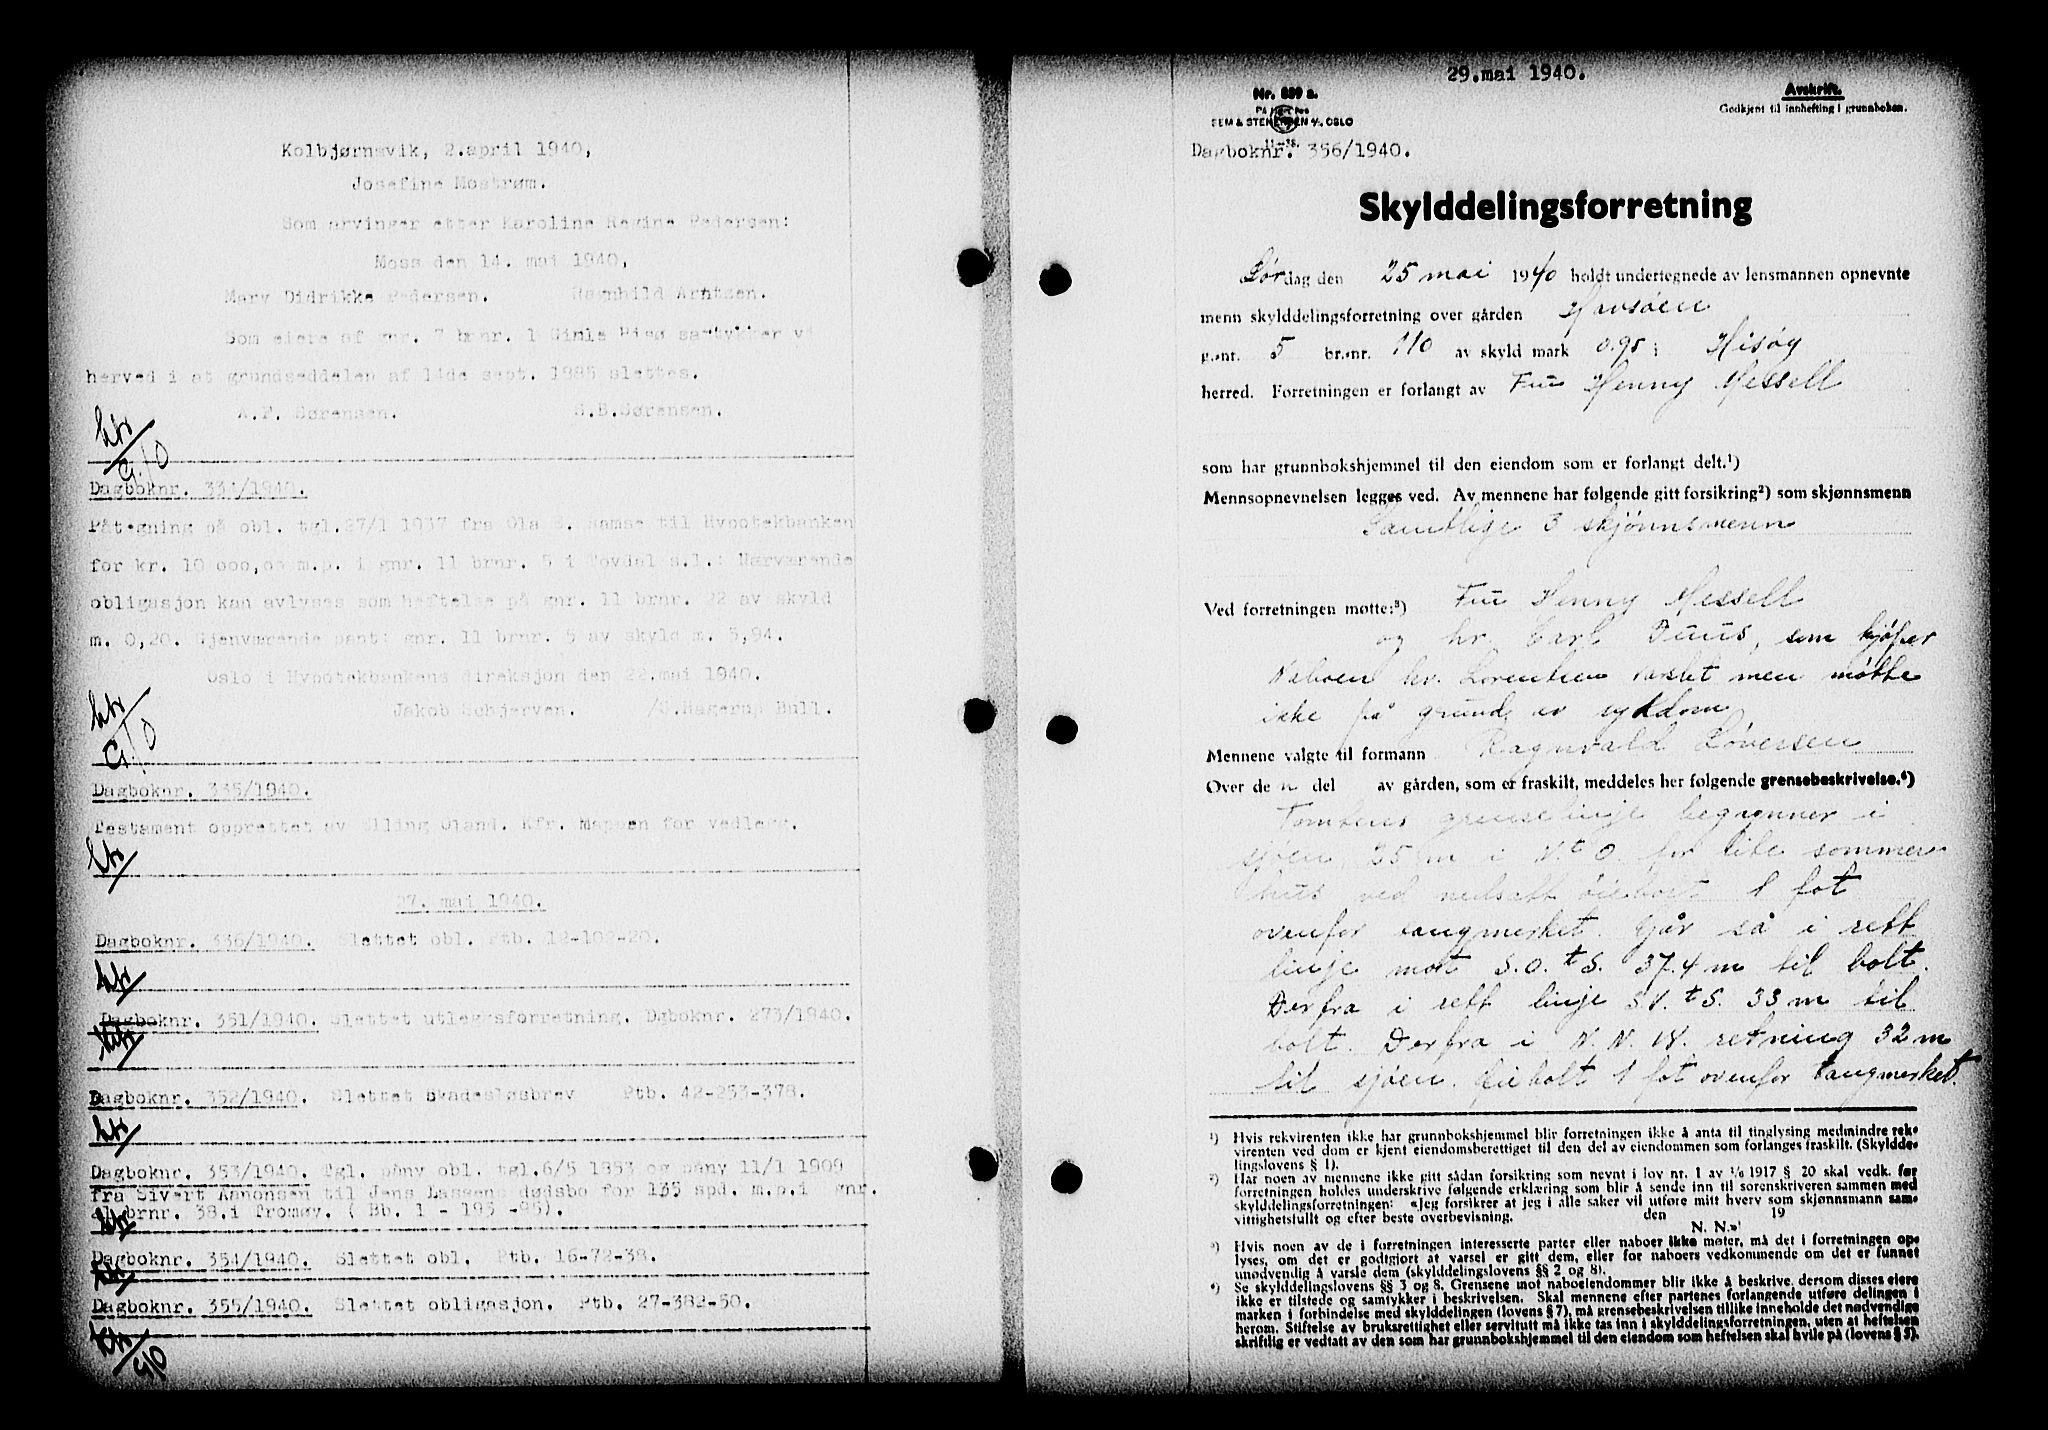 Kolbjørnsvik, 2.april 1940,
Josefine Mostrøm.
Som arvinger etter Karoline Regine Pedersen:
Moss den 14. mai 1940,
Mary Didrikke Pedersen. Ragnhild Arntzen.
Som eiere af gnr. 7 brnr. 1 Gimle Hisø samtykker vi
herved i at grundseddelen af 14de sept. 1885 slettes.
A.F. Sørensen. S.B.Sørensen.
Dagboknr. 334/1940.
Påtegning på obl. tgl.27/1 1937 fra Ola S. Ramse til Hypotekbanken
for kr. 10 000,00 m.p. i gnr. 11 brnr. 5 i Tovdal s.l.: Nærværende
obligasjon kan avlyses som heftelse på gnr. 11 brnr. 22 av skyld
m. 0,20. Gjenværende pant: gnr. 11 brnr. 5 av skyld m. 3,94.
Oslo i Hypotekbankens direksjon den 22.mai 1940.
Jakob Schjerven. /G.Hagerup Bull.
Dagboknr. 335/1940.
Testament opprettet av Elling Oland. Kfr. mappen for vedlegg.
27. mai 1940.
Dagboknr. 336/1940. Slettet obl. Ptb. 12-102-20.
Dagboknr. 351/1940. Slettet utlegsforretning. Dgboknr. 273/1940.
Dagboknr. 352/1940. Slettet Skadesløsbrev Ptb. 42-253-378.
Dagboknr. 353/1940. Tgl. påny obl. tgl.6/5 1853 og påny 11/1 1909
fra Sivert Aanonsen til Jens Lassens dødsbo for 135 spd. m.p.i gnr.
brnr. 38.i Tromøy. ( Bb. 1 - 195 -95).
Dagboknr. 354/1940. Slettet obl. Ptb. 16-72-38.
Dagboknr. 355/1940. Slettet obligasjon. Ptb. 27-382-50.
29.mai 1940.
Nr. 889 a.
SEM & STENERSEN A/S OSLO
Avskrift.
Godkjent til innhefting i grunnboken.
Dagboknr. 356/1940.
Skylddelingsforretning
Lørdag den 25 mai 1940 holdt undertegnede av lensmannen opnevnte
menn skylddelingsforretning over gården Havsøen
g.nr. 5 br.nr. 110 av skyld mark 0.95 i Hisøy
herred. Forretningen er forlangt av Fru Henny Messell
som har grunnbokshjemmel til den eiendom som er forlangt delt.¹)
Mennsopnevnelsen legges ved. Av mennene har følgende gitt forsikring²) som skjønnsmenn
Samtlige 3 skjønnsmenn
Ved forretningen møtte:³) Fru Henny Messell
og hr. Carl Duus, som kjøper
Naboen hr. Lorentzen varslet men møtte
ikke på grund av sykdom
Mennene valgte til formann Ragnvald Løversen
Over de n del av gården, som er fraskilt, meddeles her følgende grensebeskrivelse.⁴)
Tomtens grenselinje begynner i
sjøen, 25 m i N.t.O. for lite sommer-
hus ved nedsatt øiebolt 1 fot
ovenfor tangmerket. Går så i rett
linje mot S.O.t.S. 37.4 m til bolt.
Derfra i rett linje S.V.t.S. 33 m til
bolt. Derfra i N.N.W. retning 32 m
til sjøen. Øiebolt 1 fot ovenfor tangmerket.
¹) Hvis rekvirenten ikke har grunnbokshjemmel blir forretningen ikke å anta til tinglysing medmindre rek-
virenten ved dom er kjent eiendomsberettiget til den del av eiendommen som forlanges fraskilt. (Skyldde-
lingslovens § 1).
²) Har noen av mennene ikke gitt sådan forsikring som nevnt i lov nr. 1 av 1/6 1917 § 20 skal vedk. før
forretningen holdes underskrive følgende erklæring som blir å sende inn til sorenskriveren sammen med
skylddelingsforretningen: «Jeg forsikrer at jeg i alle saker vil utføre mitt hverv som skjønnsmann sam-
vittighetsfullt og efter beste overbevisning. den 19
N. N.»
³) Hvis noen av de i forretningen interesserte parter eller naboer ikke møter, må det i forretningen op-
lyses, om det er godtgjort at varsel er gitt dem, eller for naboers vedkommende om det er funnet
unødvendig å varsle dem (skylddelingslovens §§ 2 og 8).
⁴) Se skylddelingslovens §§ 3 og 8. Grensene mot naboeiendommer blir ikke å beskrive, dersom disses eiere
ikke er tilstede og samtykker i beskrivelsen. Skal mennene efter partenes forlangende utføre delingen i
marken i forbindelse med skylddelingen (lovens § 7), må grensebeskrivelsen tillike inneholde det nødvendige
herom. Stiftelse av bruksrettighet eller servitutt må ikke tas inn i skylddelingsforretningen, uten at heftelsen
skriftlig er vedtatt av den som har grunnbokshjemmel til den eiendom som heftelsen skal hvile på (lovens § 5).